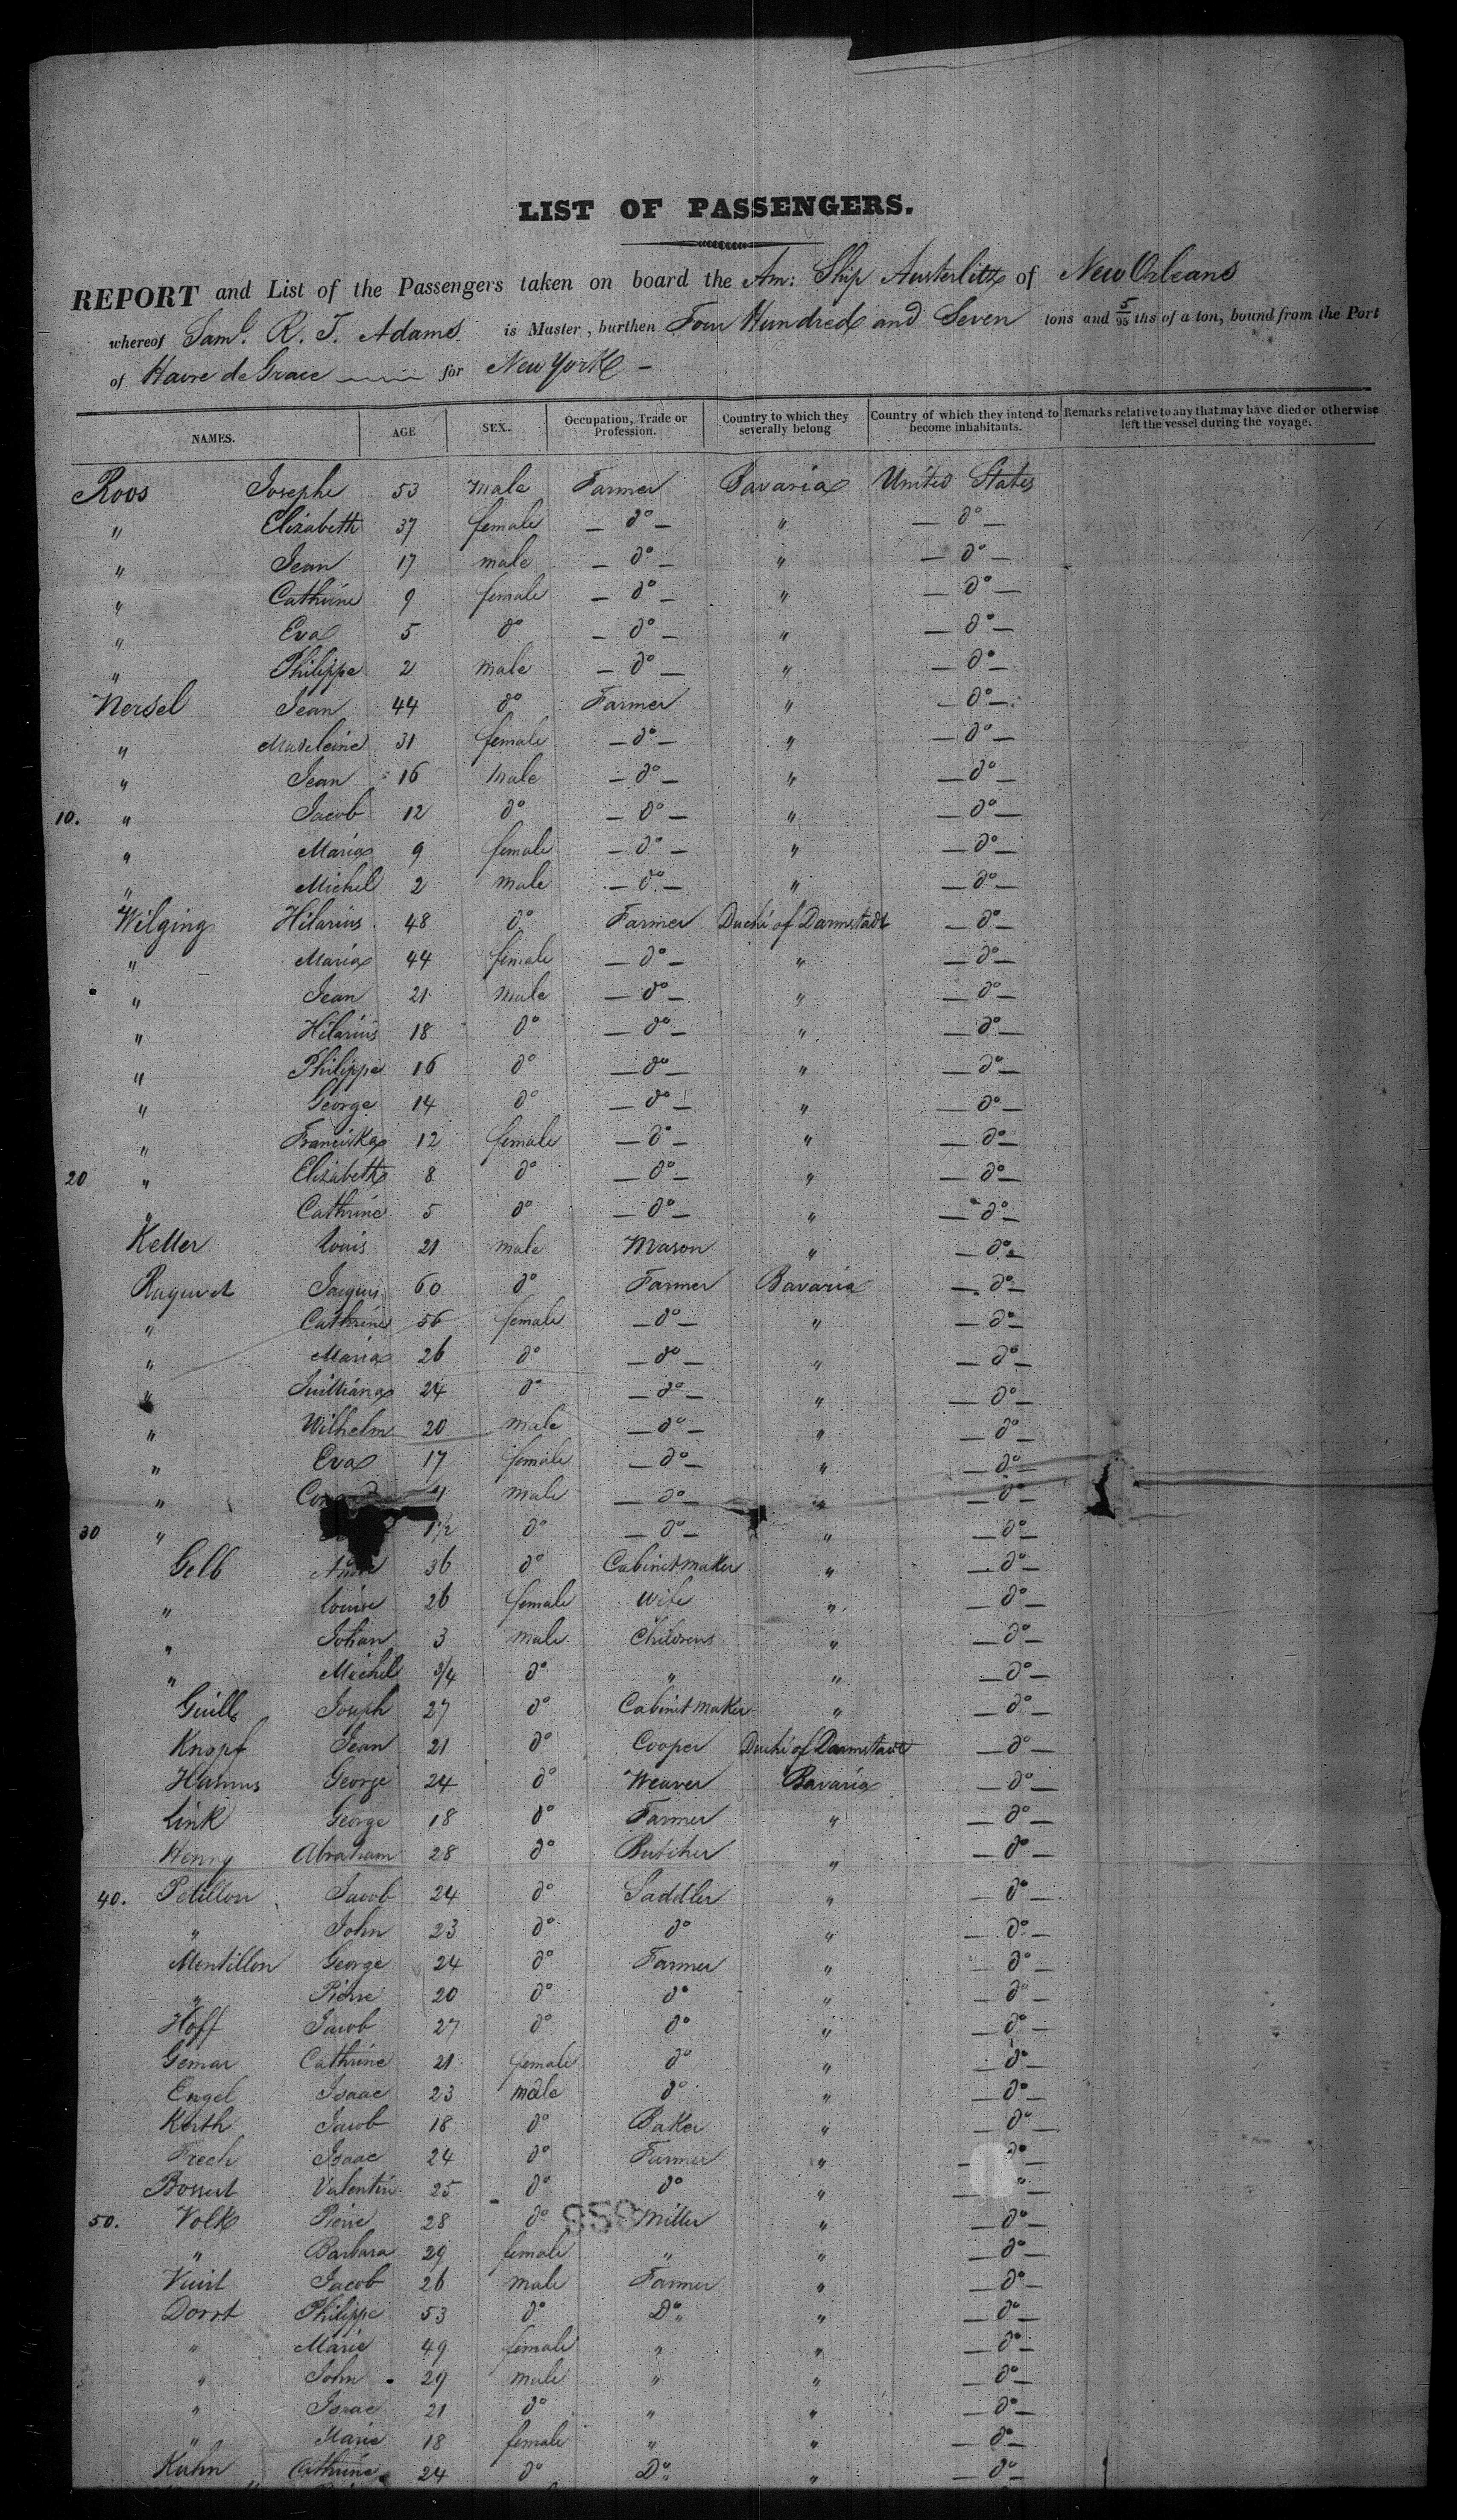 LIST OF PASSENGERS.
REPORT and List of the Passengers taken on board the Am: Ship Austerlitz of New Orleans
whereof Saml. R. T. Adams is Master, burthen Four Hundred and Seven tons and 5/95 ths of a ton, bound from the Port
of Havre de Grace for New York –
NAMES. AGE SEX. Occupation, Trade or Profession. Country to which they severally belong Country of which they intend to become inhabitants. Remarks relative to any that may have died or otherwise left the vessel during the voyage.
Roos Josephe 53 male Farmer Bavaria United States
" Elizabeth 37 female — do — " — do —
" Jean 17 male — do — " — do —
" Cathrine 9 female — do — " — do —
" Eva 5 do — do — " — do —
" Philippe 2 male — do — " — do —
Nersel Jean 44 do Farmer " — do —
" Madeleine 31 female — do — " — do —
" Jean 16 male — do — " — do —
10. " Jacob 12 do — do — " — do —
" Maria 9 female — do — " — do —
" Michel 2 male — do — " — do —
Wilging Hilarius 48 do Farmer Duché of Darmstadt — do —
" Maria 44 female — do — " — do —
" Jean 21 male — do — " — do —
" Hilarius 18 do — do — " — do —
" Philippe 16 do — do — " — do —
" George 14 do — do — " — do —
" Franciska 12 female — do — " — do —
20 " Elizabeth 8 do — do — " — do —
" Cathrine 5 do — do — " — do —
Keller Louis 21 male Mason " — do —
Raquet Jaques 60 do Farmer Bavaria — do —
" Cathrine 56 female — do — " — do —
" Maria 26 do — do — " — do —
" Juilliana 24 do — do — " — do —
" Wilhelm 20 male — do — " — do —
" Eva 17 female — do — " — do —
" male — do — " — do —
30 " 1 1/2 do — do — " — do —
Gelb 36 do Cabinet maker " — do —
" Louise 26 female Wife " — do —
" Johan 3 male Childrens " — do —
" Michel 3/4 do " " — do —
Guill Joseph 27 do Cabinet maker " — do —
Knopf Jean 21 do Cooper Duché of Darmstadt — do —
George 24 do Weaver Bavaria — do —
Link George 18 do Farmer " — do —
Henny Abraham 28 do Butcher " — do —
40. Petillon Jacob 24 do Saddler " — do —
" John 23 do do " — do —
Mentillon George 24 do Farmer " — do —
" Pierre 20 do do " — do —
Hoff Jacob 27 do do " — do —
Gemar Cathrine 21 female do " — do —
Engel Isaac 23 male do " — do —
Kerth Jacob 18 do Baker " — do —
Frech Isaac 24 do Farmer " — do —
Bossert Valentin 25 do do " — " —
50. Volk Pierre 28 do Miller " — do —
" Barbara 29 female " " — do —
Jacob 26 male Farmer " — do —
Dorst Philippe 53 do Do " — do —
" Marie 49 female " " — do —
" John 29 male " " — do —
" Isaac 21 do " " — do —
" Marie 18 female " " — do —
Kuhn Cathrine 24 do Do " — do —